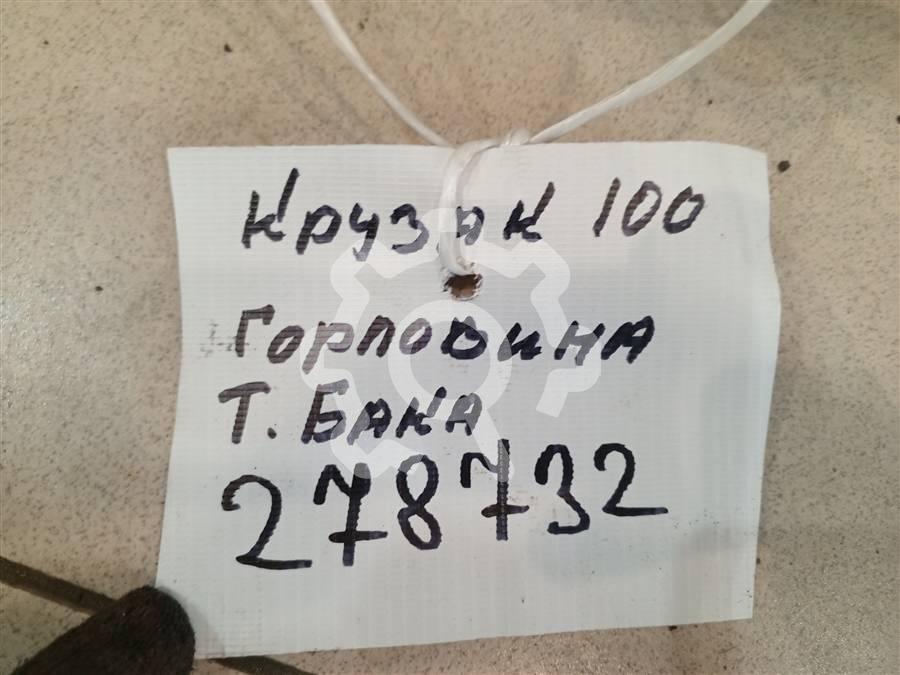 Крузак 100
Горловина
Т. Бака
278732